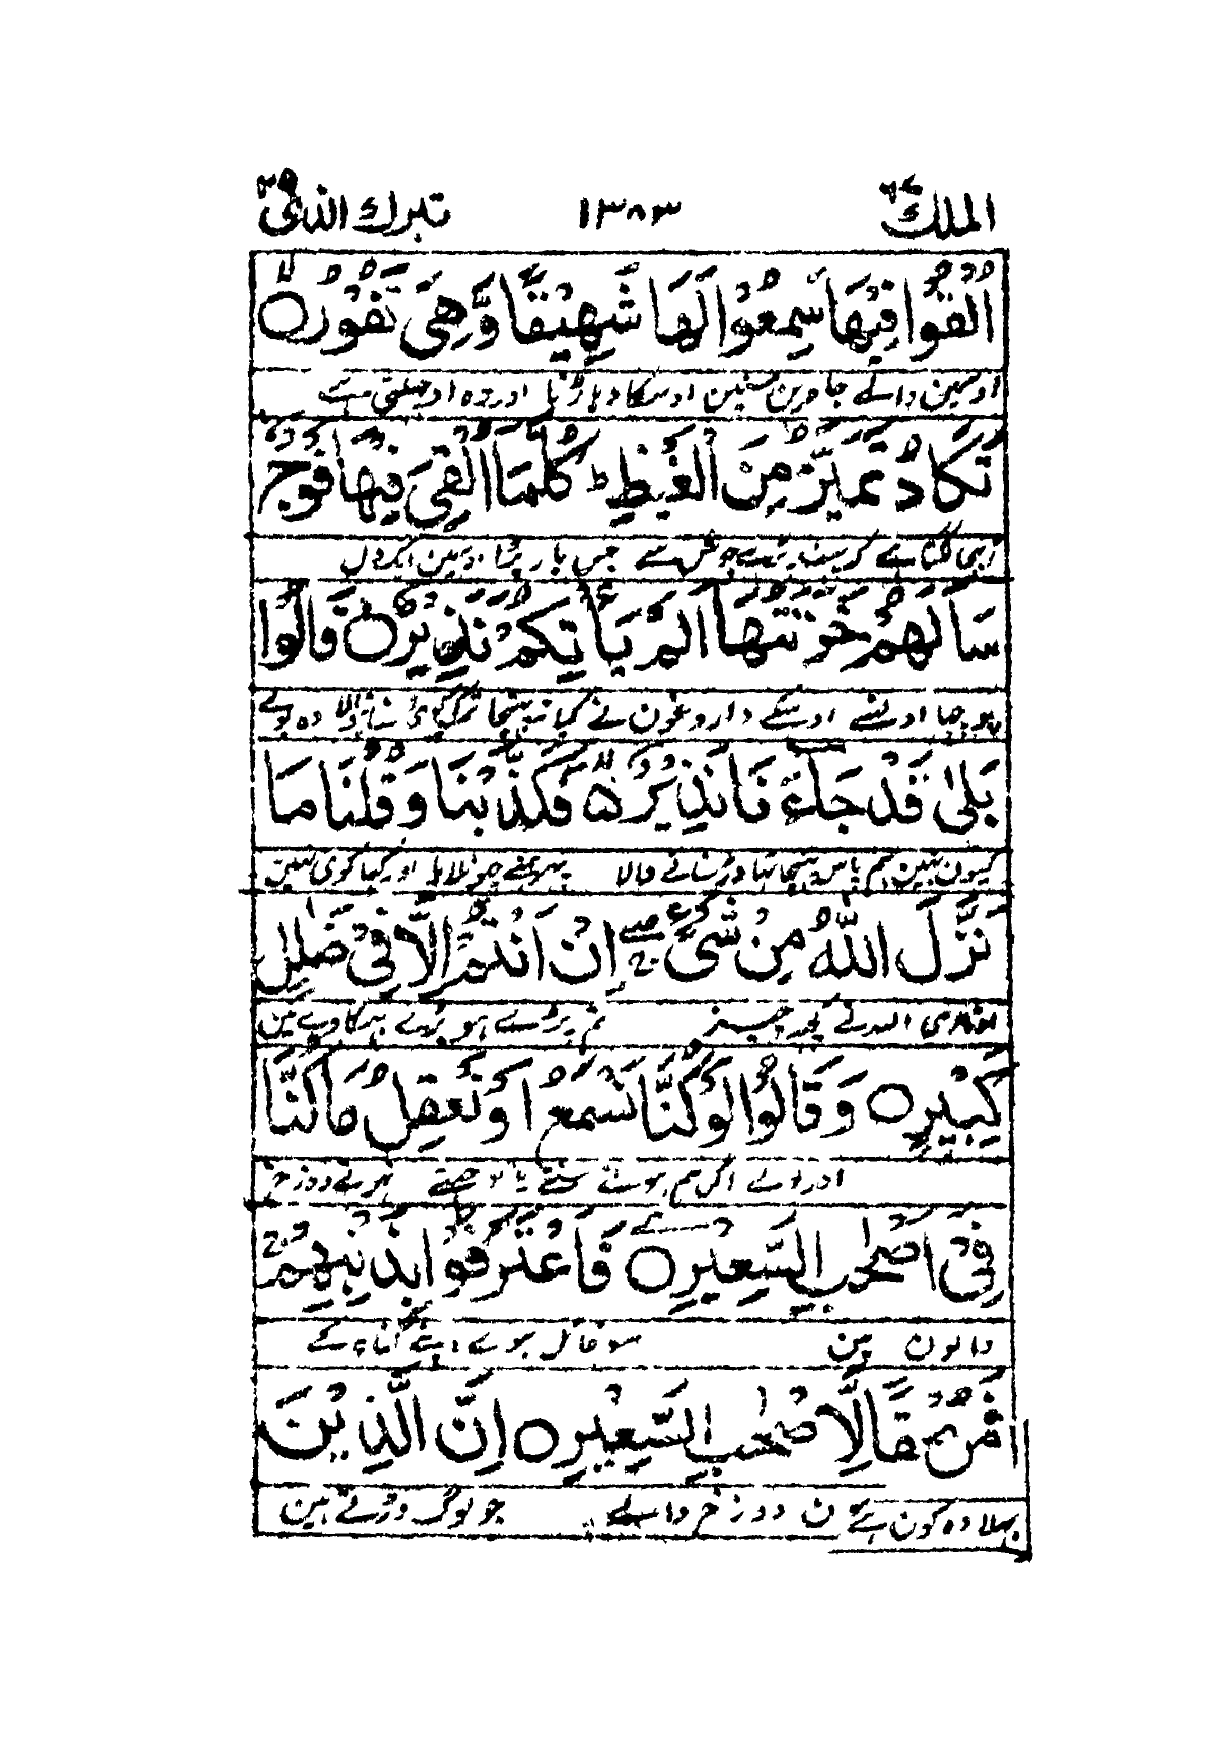 الملك ٦٧ ١٣٨٣ تبرك الذي ٢٩
اُلْقُوْا فِيْهَا سَمِعُوْا لَهَا شَهِيْقًا وَّهِيَ تَفُوْرُ ۝
دہاڑنا اور وہ اوچھلتی ہے
تَكَادُ تَمَيَّزُ مِنَ الْغَيْظِ ؕ كُلَّمَا اُلْقِيَ فِيْهَا فَوْجٌ
جوش سے جس بار پڑا اوسمین ایک دل
سَاَلَهُمْ خَزَنَتُهَا اَلَمْ يَاْتِكُمْ نَذِيْرٌ ۝ قَالُوْا
پوچھا اونسے اوسکے داروغون نے کیا نہ پہنچا تمکو کوئی ڈر سنانیوالا وہ بولے
بَلٰى قَدْ جَآءَنَا نَذِيْرٌ ۵ فَكَذَّبْنَا وَقُلْنَا مَا
کیون نہین ہم پاس پہنچا تہا ڈر سنانے والا پہر ہمنے جھوٹلایا اور کہا کوی نہین
نَزَّلَ اللّٰهُ مِنْ شَيْءٍ ۚ اِنْ اَنْتُمْ اِلَّا فِيْ ضَلٰلٍ
اوتاری اللہ نے کچھ چیز تم پڑے ہو بڑے بہکاوے مین
كَبِيْرٍ ۝ وَقَالُوْا لَوْ كُنَّا نَسْمَعُ اَوْ نَعْقِلُ مَا كُنَّا
اور بولے اگر ہم ہوتے سنتے یا بوجھتے نہوتے دوزخ
فِيْ اَصْحٰبِ السَّعِيْرِ ۝ فَاعْتَرَفُوْا بِذَنْبِهِمْ ۚ
والون مین سو قائل ہوے اپنے گناہ کے
اَفَمَنْ قَالَا صْحٰبِ السَّعِيْرِ ۝ اِنَّ الَّذِيْنَ
بہلا وہ کون ہے ن دوزخ والے جو لوگ ڈرتے ہین